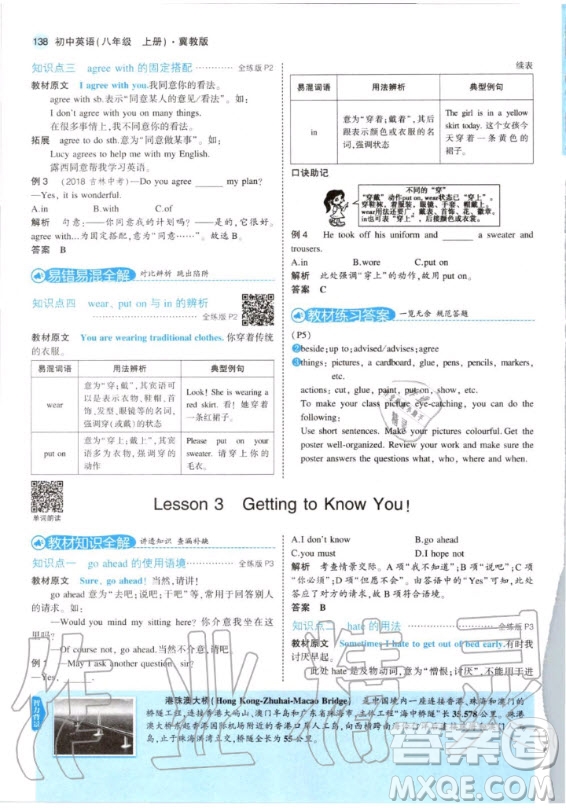 138 初中英语(八年级 上册)·冀教版
知识点三 agree with 的固定搭配 全练版 P2
教材原文 I agree with you.我同意你的看法。
agree with sb.表示“同意某人的意见/看法”。如:
I don't agree with you in many things.
在很多事情上,我不同意你的看法。
拓展 agree to do sth.意为“同意做某事”。如:
Lucy agrees to help me with my English.
露西同意帮我学习英语。
例 3 (2018 吉林中考)—Do you agree my plan?
—Yes, it is wonderful.
A.in B.with C.of
解析 句意:——你同意我的计划吗?——是的,它很好。
agree with...为固定搭配,意为“同意……”。故选B。
答案 B
易错易混全解 对比辨析 跳出陷阱
知识点四 wear、put on 与 in 的辨析
全练版 P2
教材原文 You are wearing traditional clothes.你穿着传统
的衣服。
易混词语 用法辨析 典型例句
wear 意为“穿;戴”,其宾语可以是表示衣物、鞋帽、首饰、发型、眼镜等的名词,强调穿(或戴)的状态 Look! She is wearing a red skirt. 看! 她穿着一条红裙子。
put on 意为“穿上;戴上”,其宾语多为衣物,强调穿的动作 Please put on your sweater.请穿上你的毛衣。
单词朗读
续表
易混词语 用法辨析 典型例句
in 意为“穿着;戴着”,其后跟表示颜色或衣服的名词,强调状态 The girl is in a yellow skirt today. 这个女孩今天穿着一条黄色的裙子。
口诀助记
不同的“穿”
“穿戴”动作put on, wear状态已“穿上”。
例 4 He took off his uniform and a sweater and
trousers.
A.in B.wore C.put on
解析 此处强调“穿上”的动作,故用 put on。
答案 C
教材练习答案 一览无余 规范答题
(P5)
2 beside;up to;advised/advises;agree
3 things: pictures, a cardboard, glue, pens, pencils, markers,
etc.
actions: cut, glue, paint, put on, show, etc.
To make your class picture eye-catching, you can do the
following:
Use short sentences. Make your pictures colourful.Get the
poster well-organized. Review your work and make sure the
poster answers what, who, when and where.
Lesson 3 Getting to Know You!
教材知识全解 讲透知识 查漏补缺
知识点一 go ahead 的使用语境 全练版 P3
教材原文 Sure, go ahead! 当然,请讲!
go ahead 意为“去吧;说吧;干吧”,常用于回答别人
的请求。如:
—Would you mind my sitting here? 你介意我坐在这
里吗?
—Go ahead. 当然不介意,请坐。
例 1 —May I ask another question, sir?
A.I don't know B.go ahead
C.you must D.I don't
解析 考查情景交际。A 项“我不知道”;B 项“说吧”;C 项
“你必须”;D 项“但愿不会”。由答语中的“Yes”可知,B
项符合题意。
答案 B
知识点二 hate 的用法 全练版 P3
教材原文 Sometimes I hate to get out of bed early.有时我
讨厌早起。
此处 hate 是及物动词,意为“憎恨;讨厌”,不能用于进
港珠澳大桥(Hong Kong-Zhuhai-Macao Bridge) 是中国境内一座连接香港、珠海和澳门的
作业精灵
答案圈
MXQE.COM